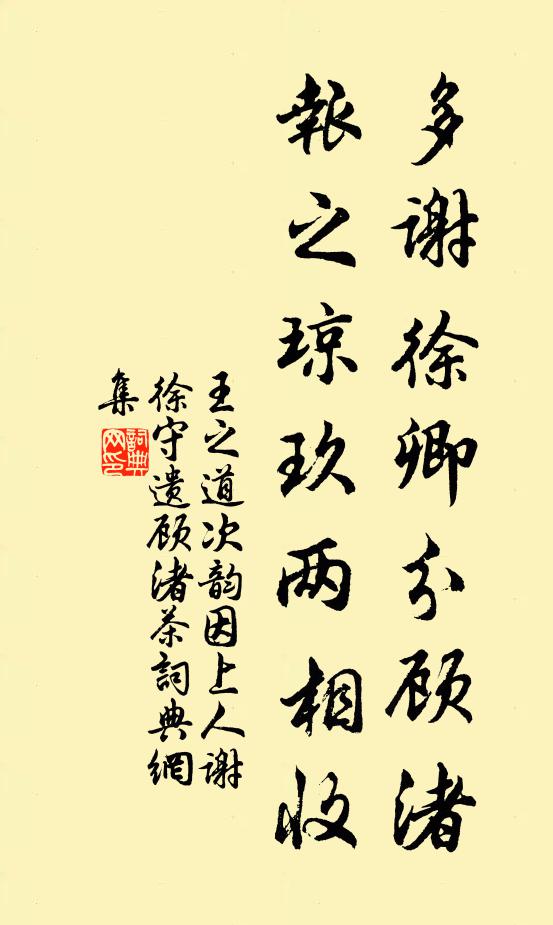 多谢徐卿分顾渚
報之琼玖两相收
王之道次韵因上人谢
徐守遗顾渚茶詞典網
集
詞典网印